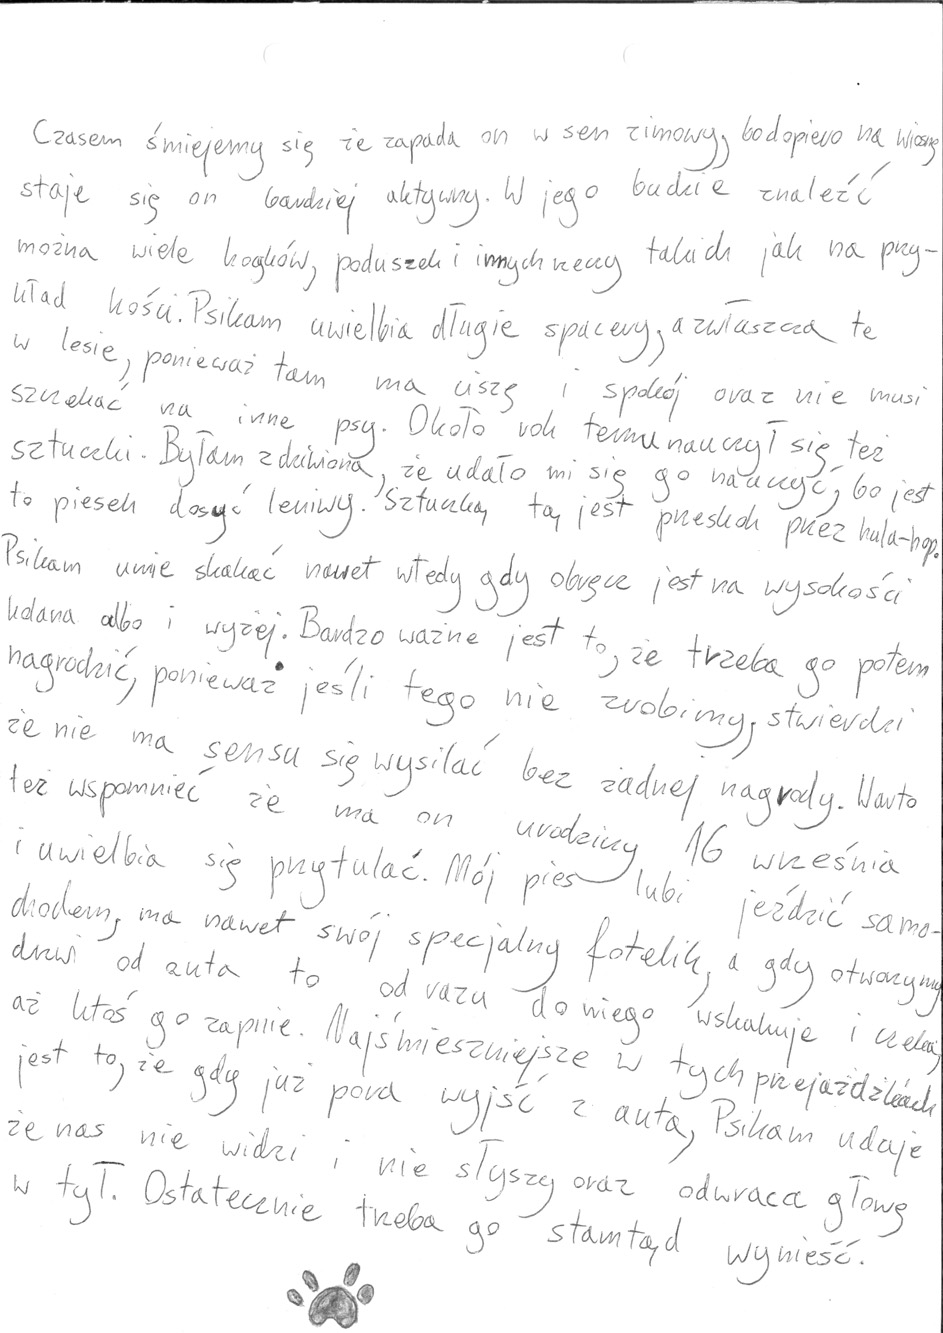 Czasem śmiejemy się że zapada on w sen zimowy, bo dopiero na wiosnę
staje się on bardziej aktywny. W jego budzie znaleźć
można wiele kocyków, poduszek i innych rzeczy takich jak na przy-
kład kości. Psikam uwielbia długie spacery, a zwłaszcza te
w lesie, ponieważ tam ma ciszę i spokój oraz nie musi
szczekać na inne psy. Około rok temu nauczył się też
sztuczki. Byłam zdziwiona, że udało mi się go nauczyć, bo jest
to piesek dosyć leniwy. Sztuczką tą jest przeskok przez hula-hop.
Psikam umie skakać nawet wtedy gdy obręcz jest na wysokości
kolana albo i wyżej. Bardzo ważne jest to, że trzeba go potem
nagrodzić, ponieważ jeśli tego nie zrobimy, stwierdzi
że nie ma sensu się wysilać bez żadnej nagrody. Warto
też wspomnieć że ma on urodziny 16 września
i uwielbia się przytulać. Mój pies lubi jeździć samo-
chodem, ma nawet swój specjalny fotelik, a gdy otworzymy
drzwi od auta to od razu do niego wskakuje i czeka,
aż ktoś go zapnie. Najśmieszniejsze w tych przejażdżkach
jest to, że gdy już pora wyjść z auta, Psikam udaje
że nas nie widzi i nie słyszy oraz odwraca głowę
w tył. Ostatecznie trzeba go stamtąd wynieść.